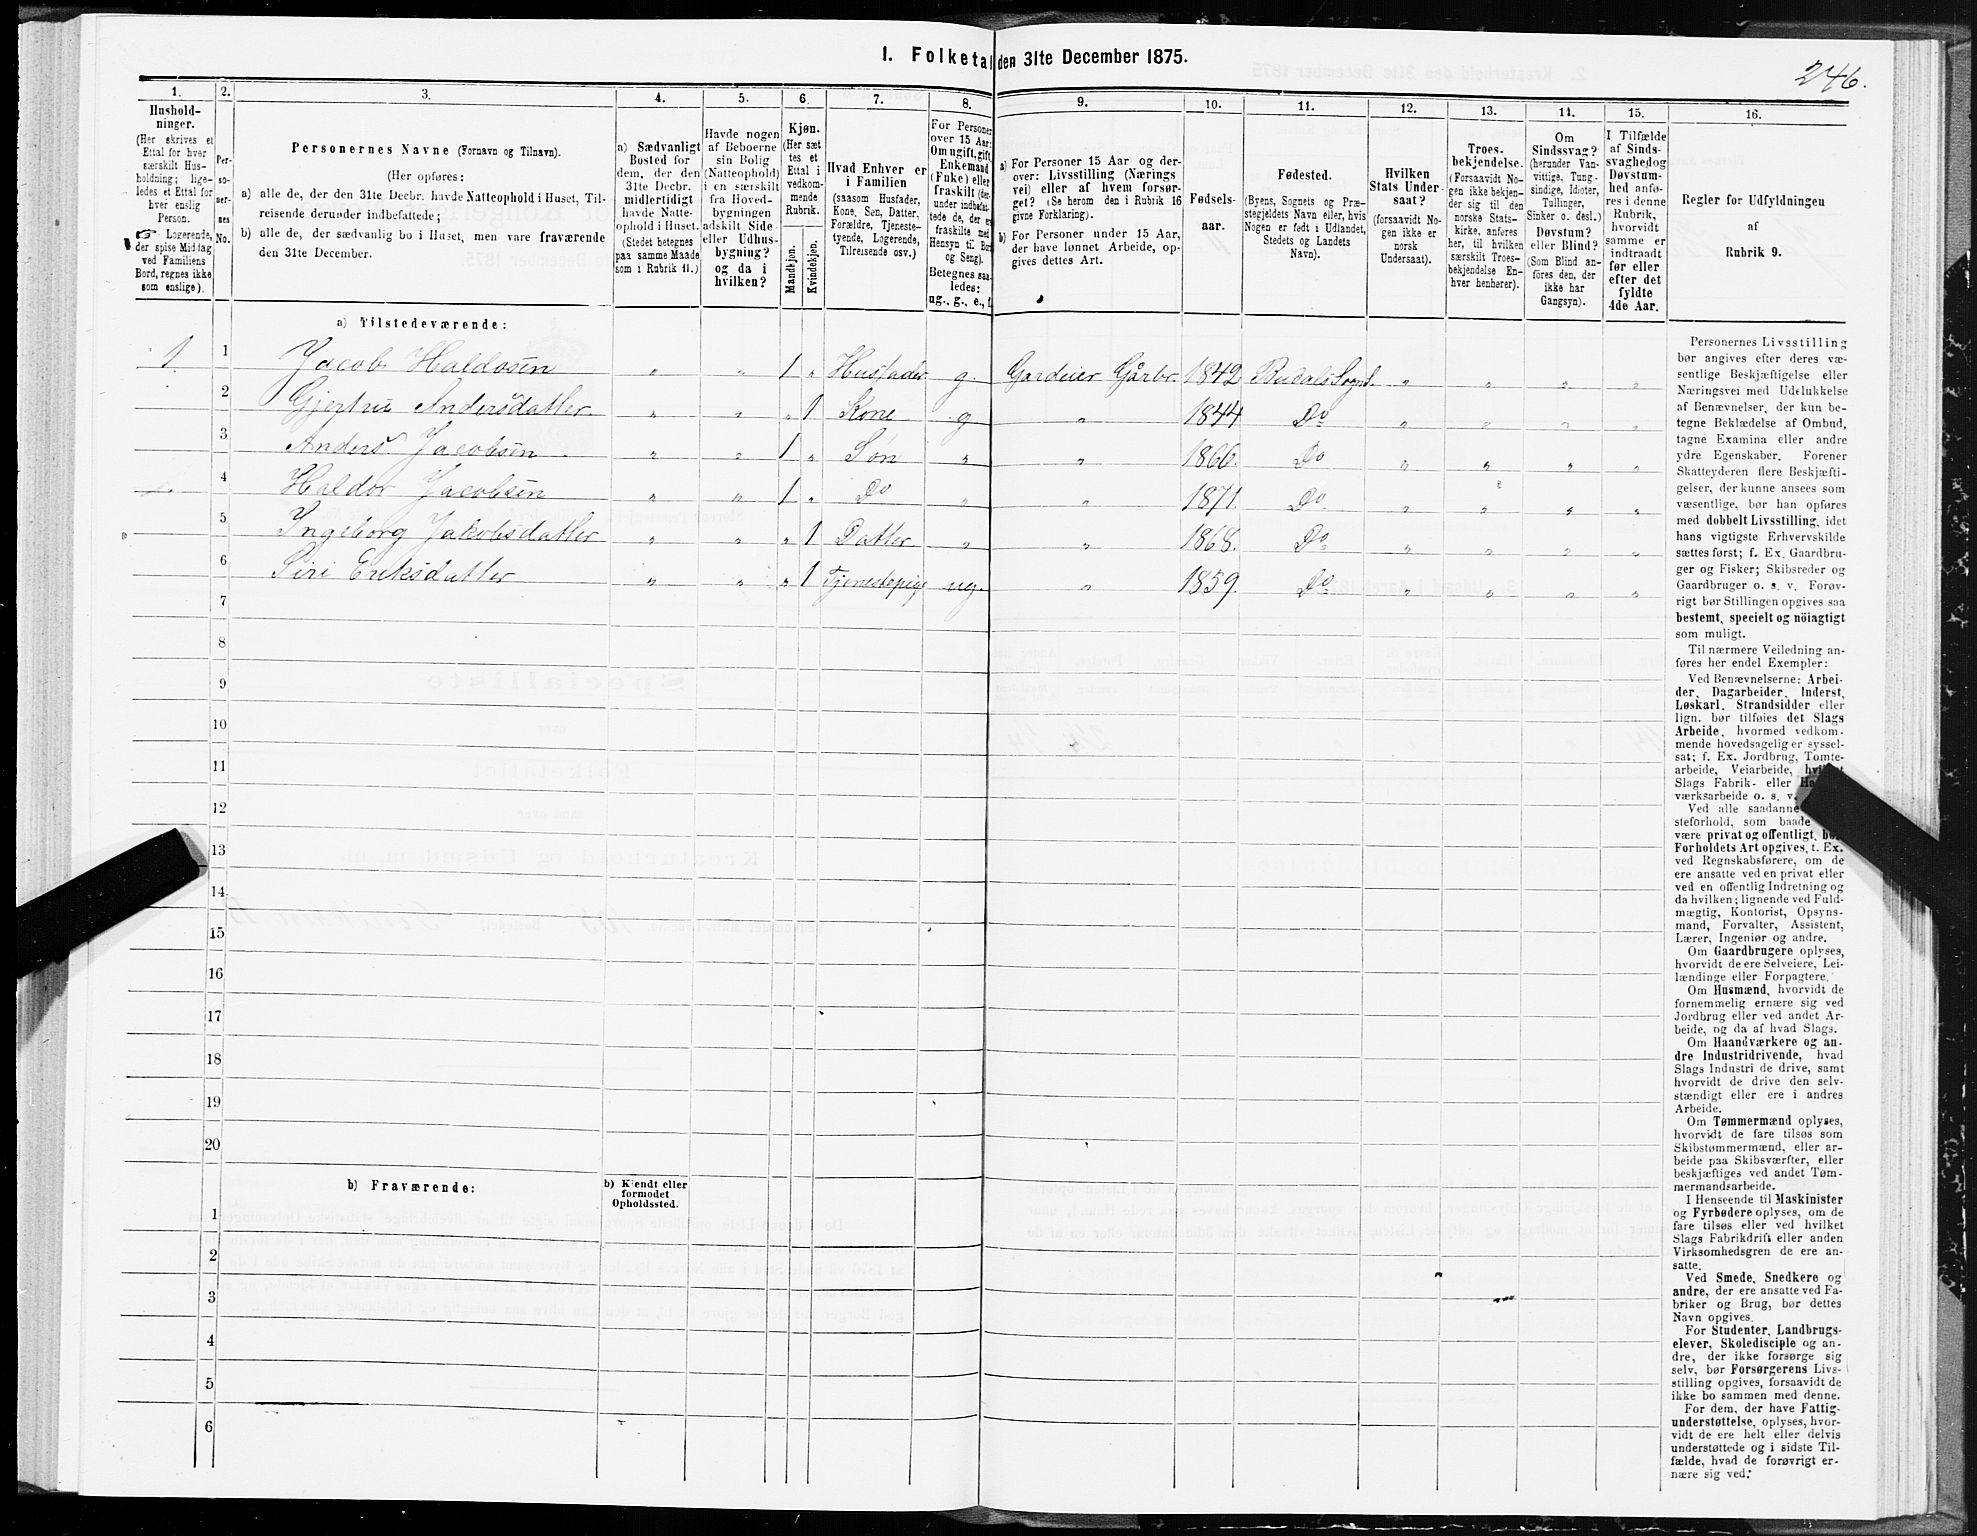 1. Folketal den 31te December 1875.
246.
1.
2.
3.
4.
5.
6.
7.
8.
9.
10.
11.
12.
13.
14.
15.
16.
Hushold-
ninger.
(Her skrives et
Ettal for hver
særskilt Hus-
holdning; lige-
ledes et Ettal for
hver enslig
Person.
☞ Logerende,
der spise Middag
ved Familiens
Bord, regnes ikke
som enslige).
Per-
so-
ner-
nes
No.
Personernes Navne (Fornavn og Tilnavn).
(Her opføres:
a) alle de, der den 31te Decbr. havde Natteophold i Huset, Til-
reisende derunder indbefattede;
b) alle de, der sædvanlig bo i Huset, men vare fraværende
den 31te December.
a) Sædvanligt
Bosted for
dem, der den
31te Decbr.
midlertidigt
havde Natte-
ophold i Huset.
(Stedet betegnes
paa samme Maade
som i Rubrik 11.)
Havde nogen
af Beboerne
sin Bolig
(Natteophold)
i en særskilt
fra Hoved-
bygningen
adskilt Side-
eller Udhus-
bygning?
og da i
hvilken?
Kjøn.
(Her sæt
tes et
Ettal i
vedkom-
mende
Rubrik.
Mandkjøn.
Kvindekjøn.
Hvad Enhver er
i Familien
(saasom Husfader,
Kone, Søn, Datter,
Forældre, Tjeneste-
tyende, Logerende,
Tilreisende osv.)
For Personer
over 15 Aar:
Om ugift, gift,
Enkemand
(Fuke) eller
fraskilt (der-
under indbefat-
tede de, der er
fraskilte med
Hensyn til Bord
og Seng).
Betegnes saa-
ledes:
ug., g., e., f.
a) For Personer 15 Aar og der-
over: Livsstilling (Nærings
vei) eller af hvem forsør-
get? (Se herom den i Rubrik 16
givne Forklaring).
b) For Personer under 15 Aar,
der have lønnet Arbeide, op-
gives dettes Art.
Fødsels-
aar.
Fødested.
(Byens, Sognets og Præ-
stegjeldets Navn eller, hvis
Nogen er født i Udlandet,
Stedets og Landets
Navn).
Hvilken
Stats Under-
saat?
(forsaavidt No-
gen ikke er
norsk
Undersaat).
Troes-
bekjendelse.
(Forsaavidt No-
gen ikke bekjen-
der sig til den
norske Stats-
kirke, anføres
her, til hvilken
særskilt Troes-
bekjendelse En-
hver henhører).
Om
Sindssvag?
(herunder Van-
vittige, Tung-
sindige, Idioter,
Tullinger,
Sinker o. desl.)
Døvstum?
eller Blind?
(Som Blind an-
føres den, der
ikke har
Gangsyn).
I Tilfælde
af Sinds-
svaghed og
Døvstum-
hed anfø-
res i denne
Rubrik,
hvorvidt
samme er
indtraadt
før eller
efter det
fyldte
4de Aar.
Regler for Udfyldningen
af
Rubrik 9.
a) Tilstedeværende:
1. 1 Jacob Haldosen „ „ 1 „ Husfader g. Gardeier Gårbr. 1842 Budals Sogn. „ „ „ „
2 Gjertru Andersdatter. „ „ „ 1 Kone g „ 1844 Do „ „ „ „
3 Anders Jacobsen „ „ 1 „ Søn „ „ 1866. Do „ „ „ „
4 Haldor Jacobsen „ „ 1 „ Do „ „ 1871. Do „ „ „
5 Ingeborg Jakobsdatter „ „ „ 1 Datter „ „ 1868. Do „ „ „ „
6 Siri Eriksdatter „ „ „ 1 Tjenestepige ug. „ 1859. Do „ „ „ „
7
8
9
10
11
12
13
14
15
16
17
18
19
20
b) Fraværende:
b) Kjendt eller
formodet
Opholdssted.
1
2
3
4
5
6
Personernes Livsstilling
bør angives efter deres væ-
sentlige Beskjæftigelse eller
Næringsvei med Udelukkelse
af Benævnelser, der kun be-
tegne Beklædelse af Ombud,
tagne Examina eller andre
ydre Egenskaber. Forener
Skatteyderen flere Beskjæfti-
gelser, der kunne ansees som
væsentlige, bør han opføres
med dobbelt Livsstilling, idet
hans vigtigste Erhvervskilde
sættes først; f. Ex. Gaardbru-
ger og Fisker; Skibsreder og
Gaardbruger o. s. v. Forøv-
rigt bør Stillingen opgives saa
bestemt, specielt og nöiagtigt
som muligt.
Til nærmere Veiledning an-
føres her endel Exempler:
Ved Benævnelserne: Arbei-
der, Dagarbeider, Inderst,
Løskarl, Strandsidder eller
lign. bør tilføies det Slags
Arbeide, hvormed vedkom-
mende hovedsagelig er syssel-
sat; f. Ex. Jordbrug, Tomte-
arbeide, Veiarbeide, hvilket
Slags Fabrik- eller Ha
værksarbeide o. s. v.
Ved alle saadanne
steforhold, som baade
være privat og offentligt, bør
Forholdets Art opgives, t. Ex.
ved Regnskabsførere, om de
ere ansatte ved en privat eller
ved en offentlig Indretning og
da hvilken; lignende ved Fuld-
mægtig, Kontorist, Opsyns-
mand, Forvalter, Assistent,
Lærer, Ingeniør og andre.
Om Gaardbrugere oplyses,
hvorvidt de ere Selveiere, Lei-
lændinge eller Forpagtere.
Om Husmænd, hvorvidt de
fornemmelig ernære sig ved
Jordbrug eller ved andet Ar-
beide, og da af hvad Slags.
Om Haandværkere og an-
dre Industridrivende, hvad
Slags Industri de drive, samt
hvorvidt de drive den selv-
stændigt eller ere i andres
Arbeide.
Om Tømmermænd oplyses,
hvorvidt de fare tilsøs som
Skibstømmermænd, eller ar-
beide paa Skibsværfter, eller
beskjæftiges ved andet Tøm-
mermandsarbeide.
I Henseende til Maskinister
og Fyrbødere oplyses, om de
fare tilsøs eller ved hvilket
Slags Fabrikdrift eller anden
Virksomhedsgren de ere an-
satte.
Ved Smede, Snedkere og
andre, der ere ansatte ved Fa-
briker og Brug, bør dettes
Navn opgives.
For Studenter, Landbrugs-
elever, Skoledisciple og an-
dre, der ikke forsørge sig
selv, bør Forsørgerens Livs-
stilling opgives, forsaavidt de
ikke bo sammen med denne.
For dem, der have Fattig-
understøttelse, oplyses, hvor-
vidt de ere helt eller delvis
understøttede og i sidste Til-
fælde, hvad de forøvrigt er-
nære sig ved.